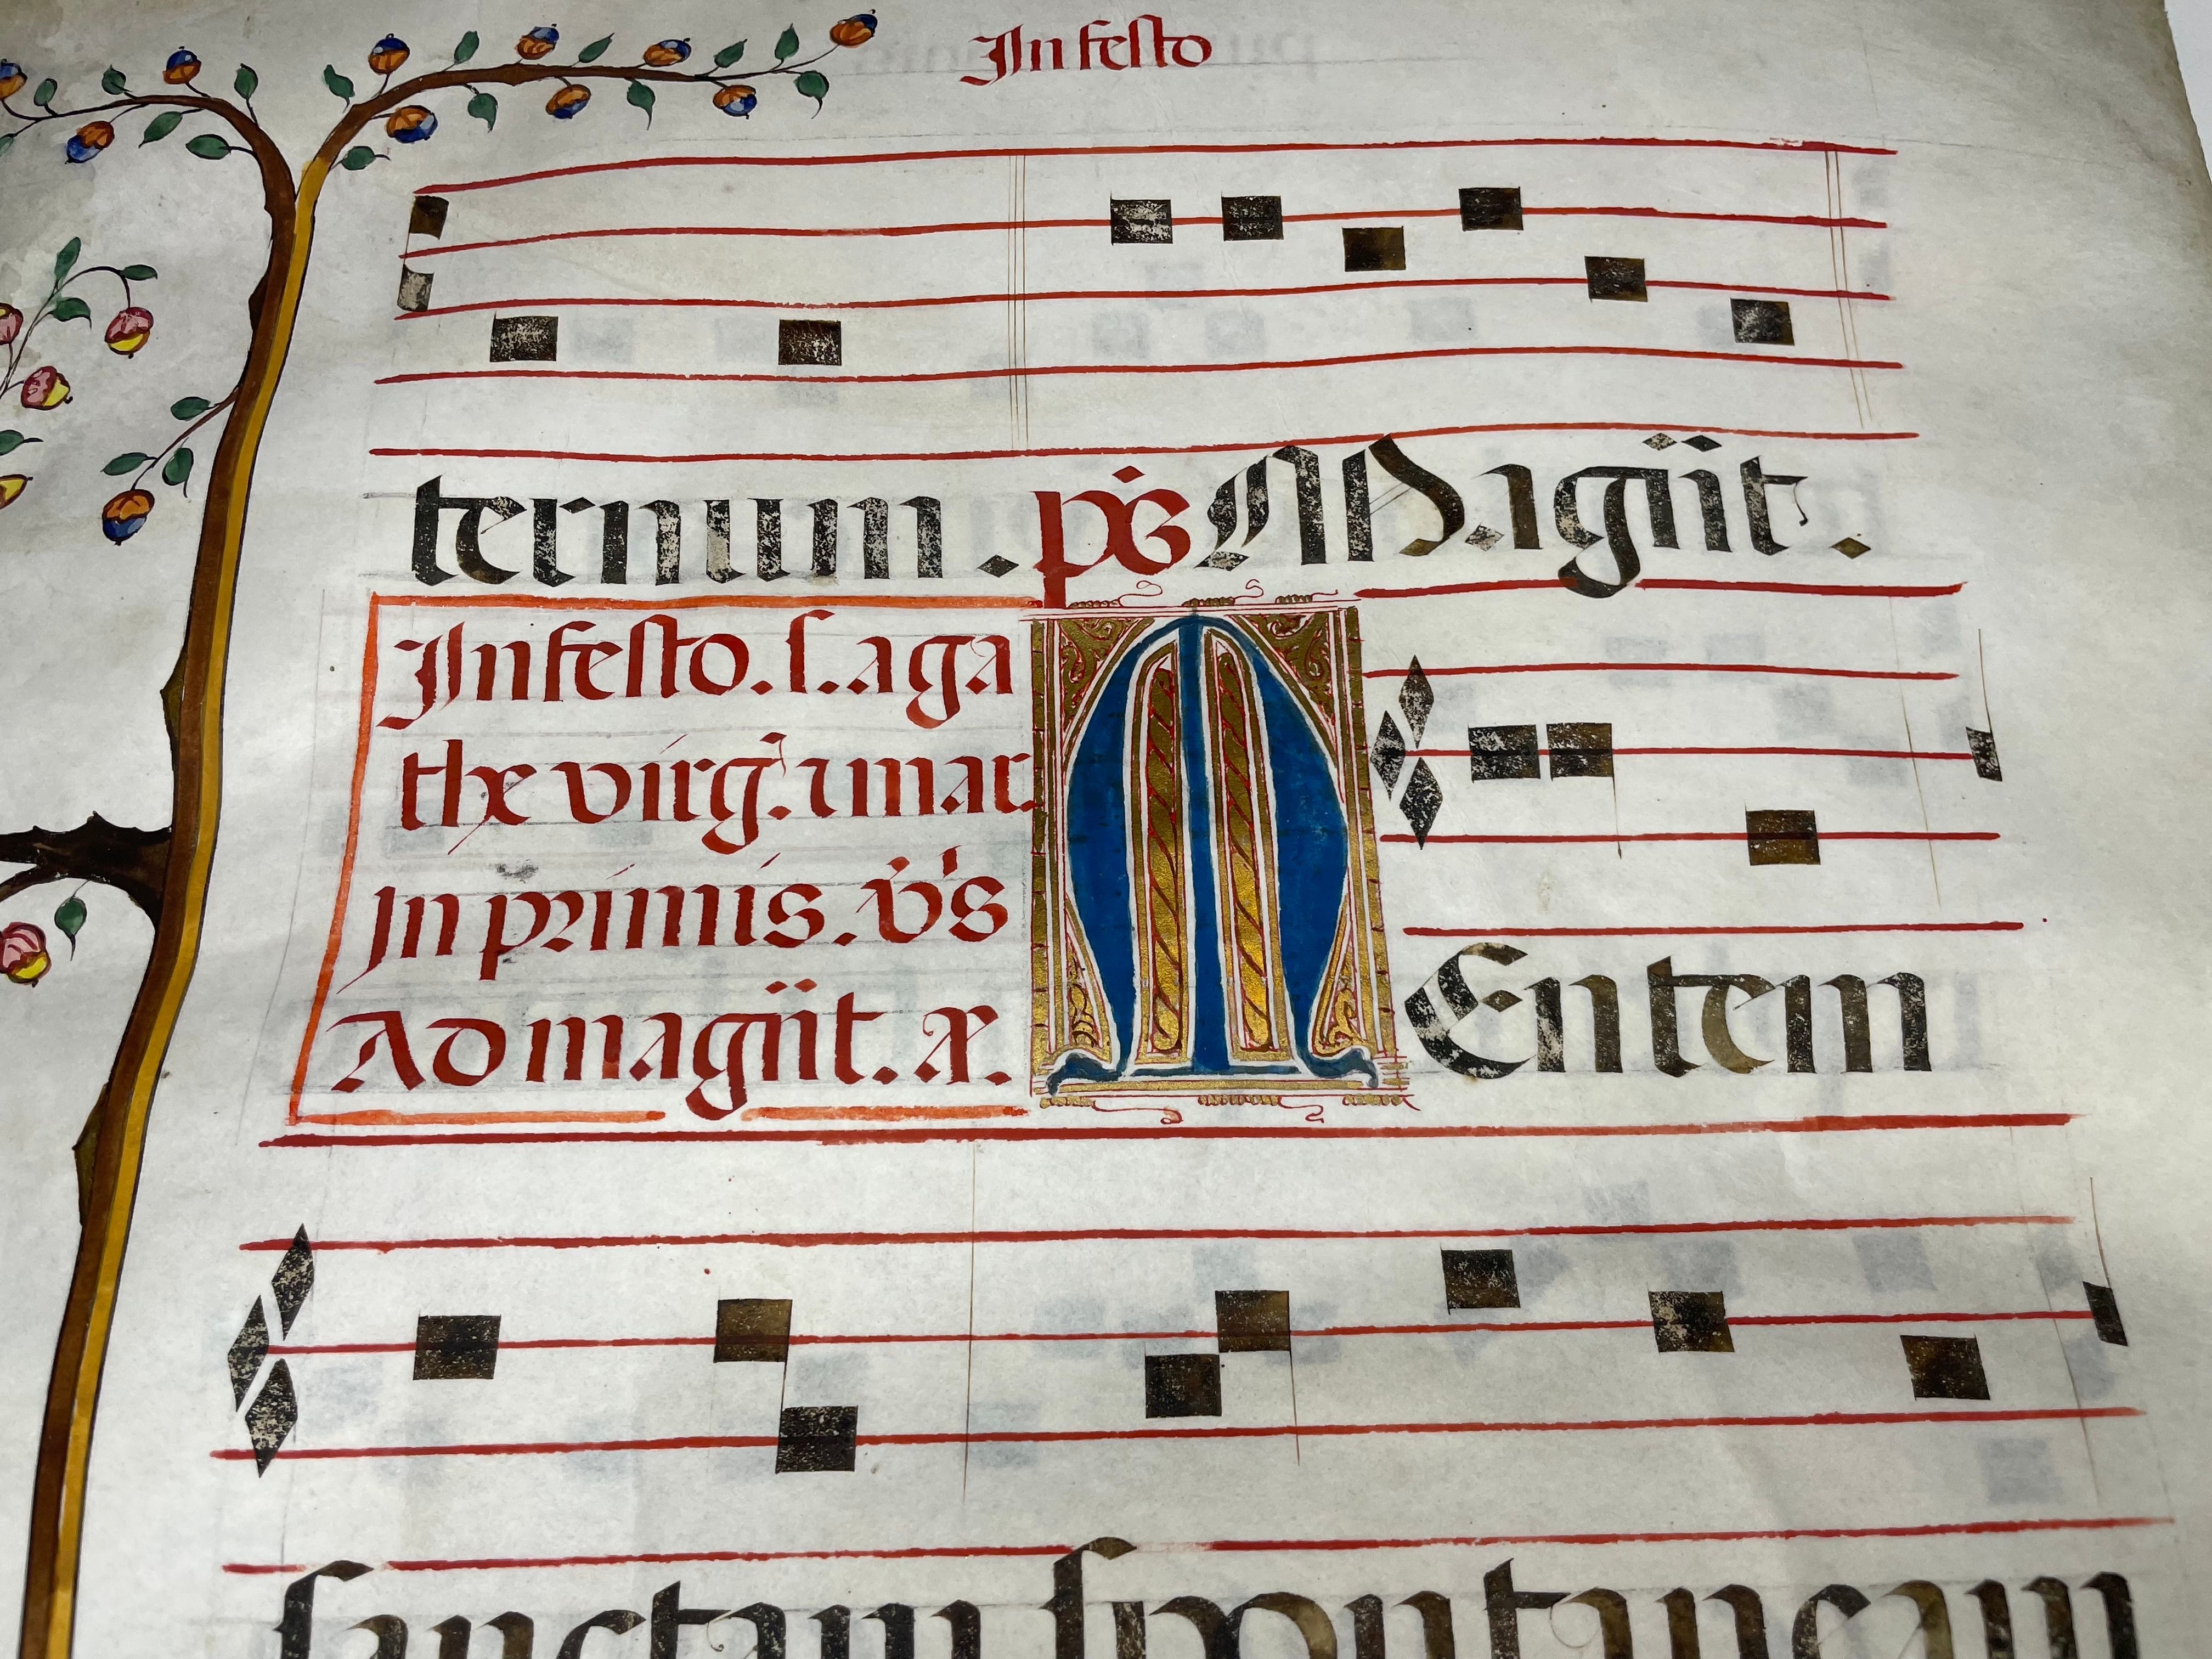 In festo
ternum. ps Magñit.
In festo. s. aga
the virg. ⁊ mar.
In primis. v̄s
Ad magñit. añ.
MEntem
sanctam spontaneam